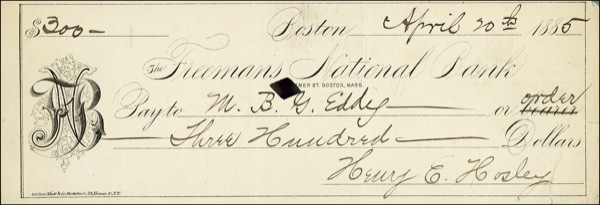 $300 — Boston April 20th 1885
The Freemans National Bank
MER ST. BOSTON, MASS.
Pay to M. B. G. Eddy or order
Three Hundred Dollars
Henry E. Hosley